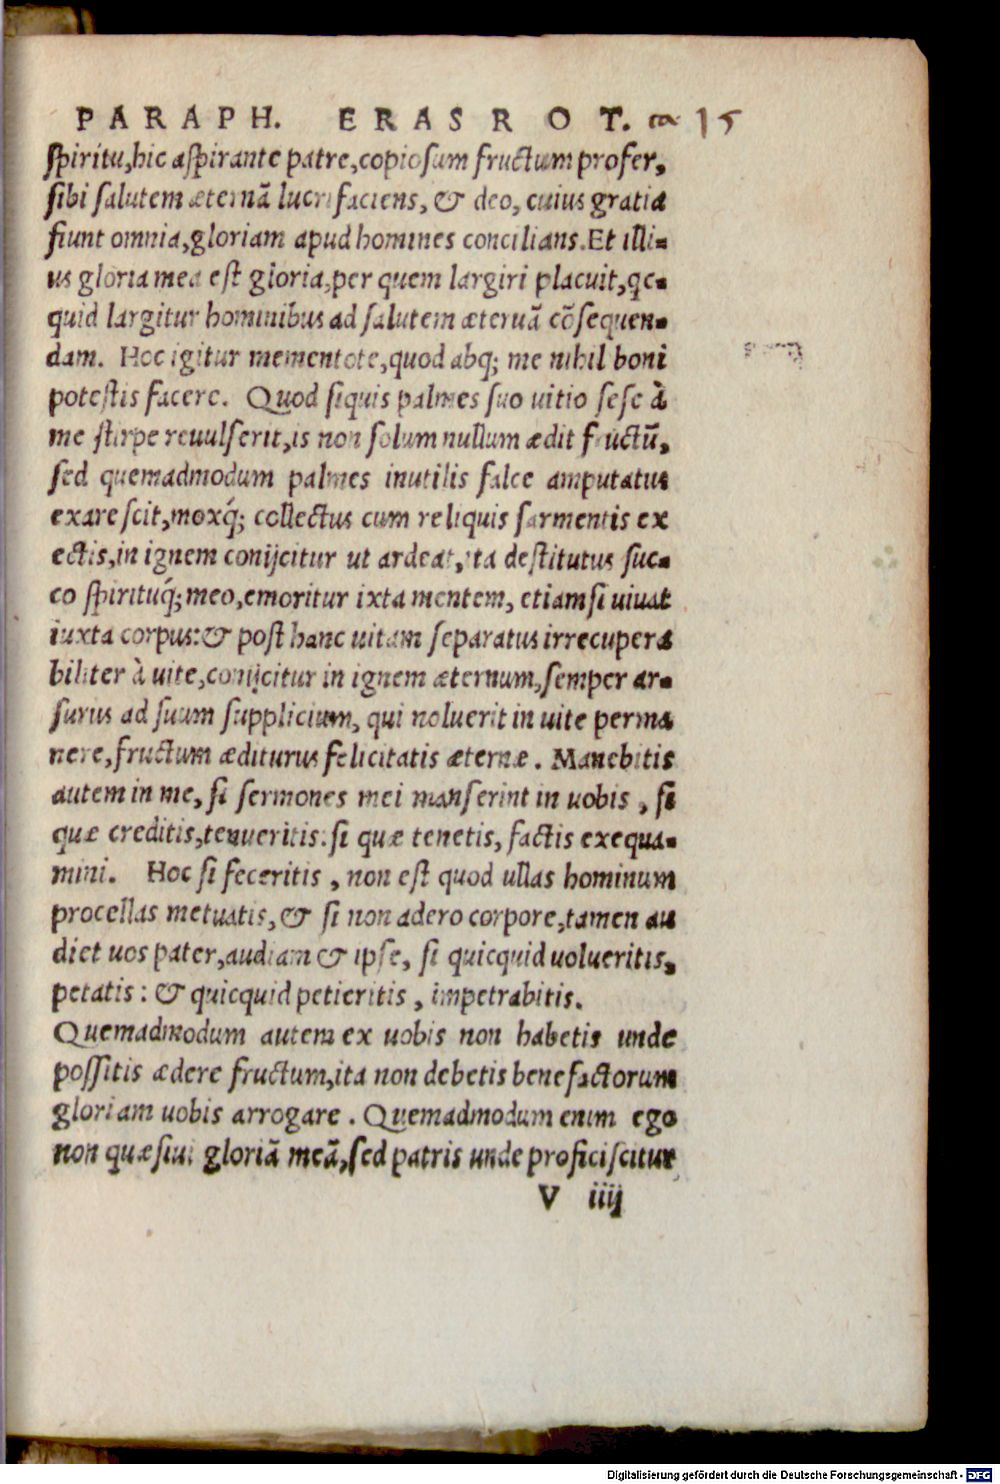 PARAPH. ERAS ROT. ca 15
spiritu, hic aspirante patre, copiosum fructum profer,
sibi salutem æternā lucrifaciens, & deo, cuius gratia
fiunt omnia, gloriam apud homines concilians. Et illi-
us gloria mea est gloria, per quem largiri placuit, qc-
quid largitur hominibus ad salutem æteruā cōsequen-
dam. Hoc igitur mementote, quod abq; me nihil boni
potestis facere. Quod siquis palmes suo uitio sese à
me stirpe reuulserit, is non solum nullum ædit fructū,
sed quemadmodum palmes inutilis falce amputatus
exarescit, moxq́; collectus cum reliquis sarmentis ex
ectis, in ignem conijcitur ut ardeat, ita destitutus suc-
co spirituq́; meo, emoritur ixta mentem, etiamsi uiuat
iuxta corpus: & post hanc uitam separatus irrecupera
biliter à uite, conijcitur in ignem æternum, semper ar-
surus ad suum supplicium, qui noluerit in uite perma
nere, fructum æditurus felicitatis æternæ. Manebitis
autem in me, si sermones mei manserint in uobis, si
quæ creditis, tenueritis: si quæ tenetis, factis exequa-
mini. Hoc si feceritis, non est quod ullas hominum
procellas metuatis, & si non adero corpore, tamen au
diet uos pater, audiam & ipse, si quicquid uolueritis,
petatis: & quicquid petieritis, impetrabitis.
Quemadmodum autem ex uobis non habetis unde
possitis ædere fructum, ita non debetis benefactorum
gloriam uobis arrogare. Quemadmodum enim ego
non quæsiui gloriā meā, sed patris unde proficiscitur
V iiij
Digitalisierung gefördert durch die Deutsche Forschungsgemeinschaft - DFG